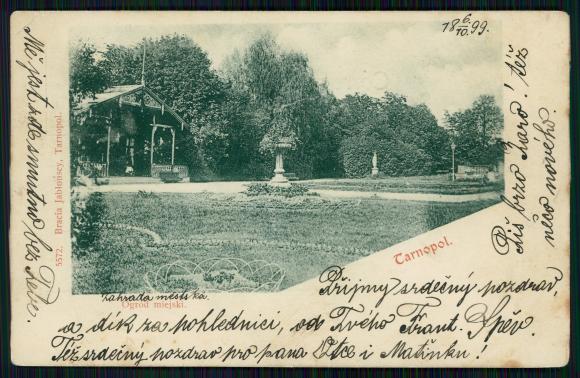 18 6/10 99.
Mě jest zde smutno bez Tebe.
5572. Bracia Jabłońscy, Tarnopol.
Piš brzo Karo! též
něco nového.
Tarnopol.
zahrada městská.
Ogród miejski.
Prijmy srdečný pozdrav,
a dík za pohlednici, od Tvého Frant. Spěv.
Též srdečný pozdrav pro pana Otce i Matinku!